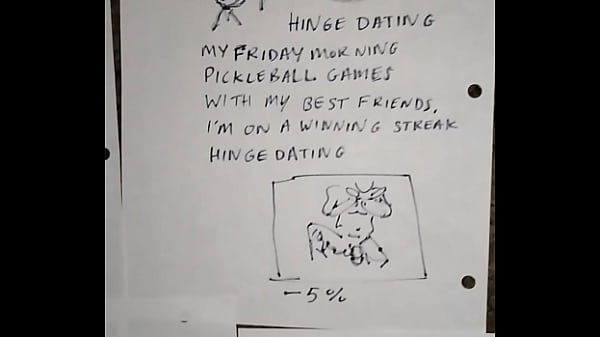 HINGE DATING
MY FRIDAY MORNING
PICKLEBALL GAMES
WITH MY BEST FRIENDS.
I'M ON A WINNING STREAK
HINGE DATING
-5%